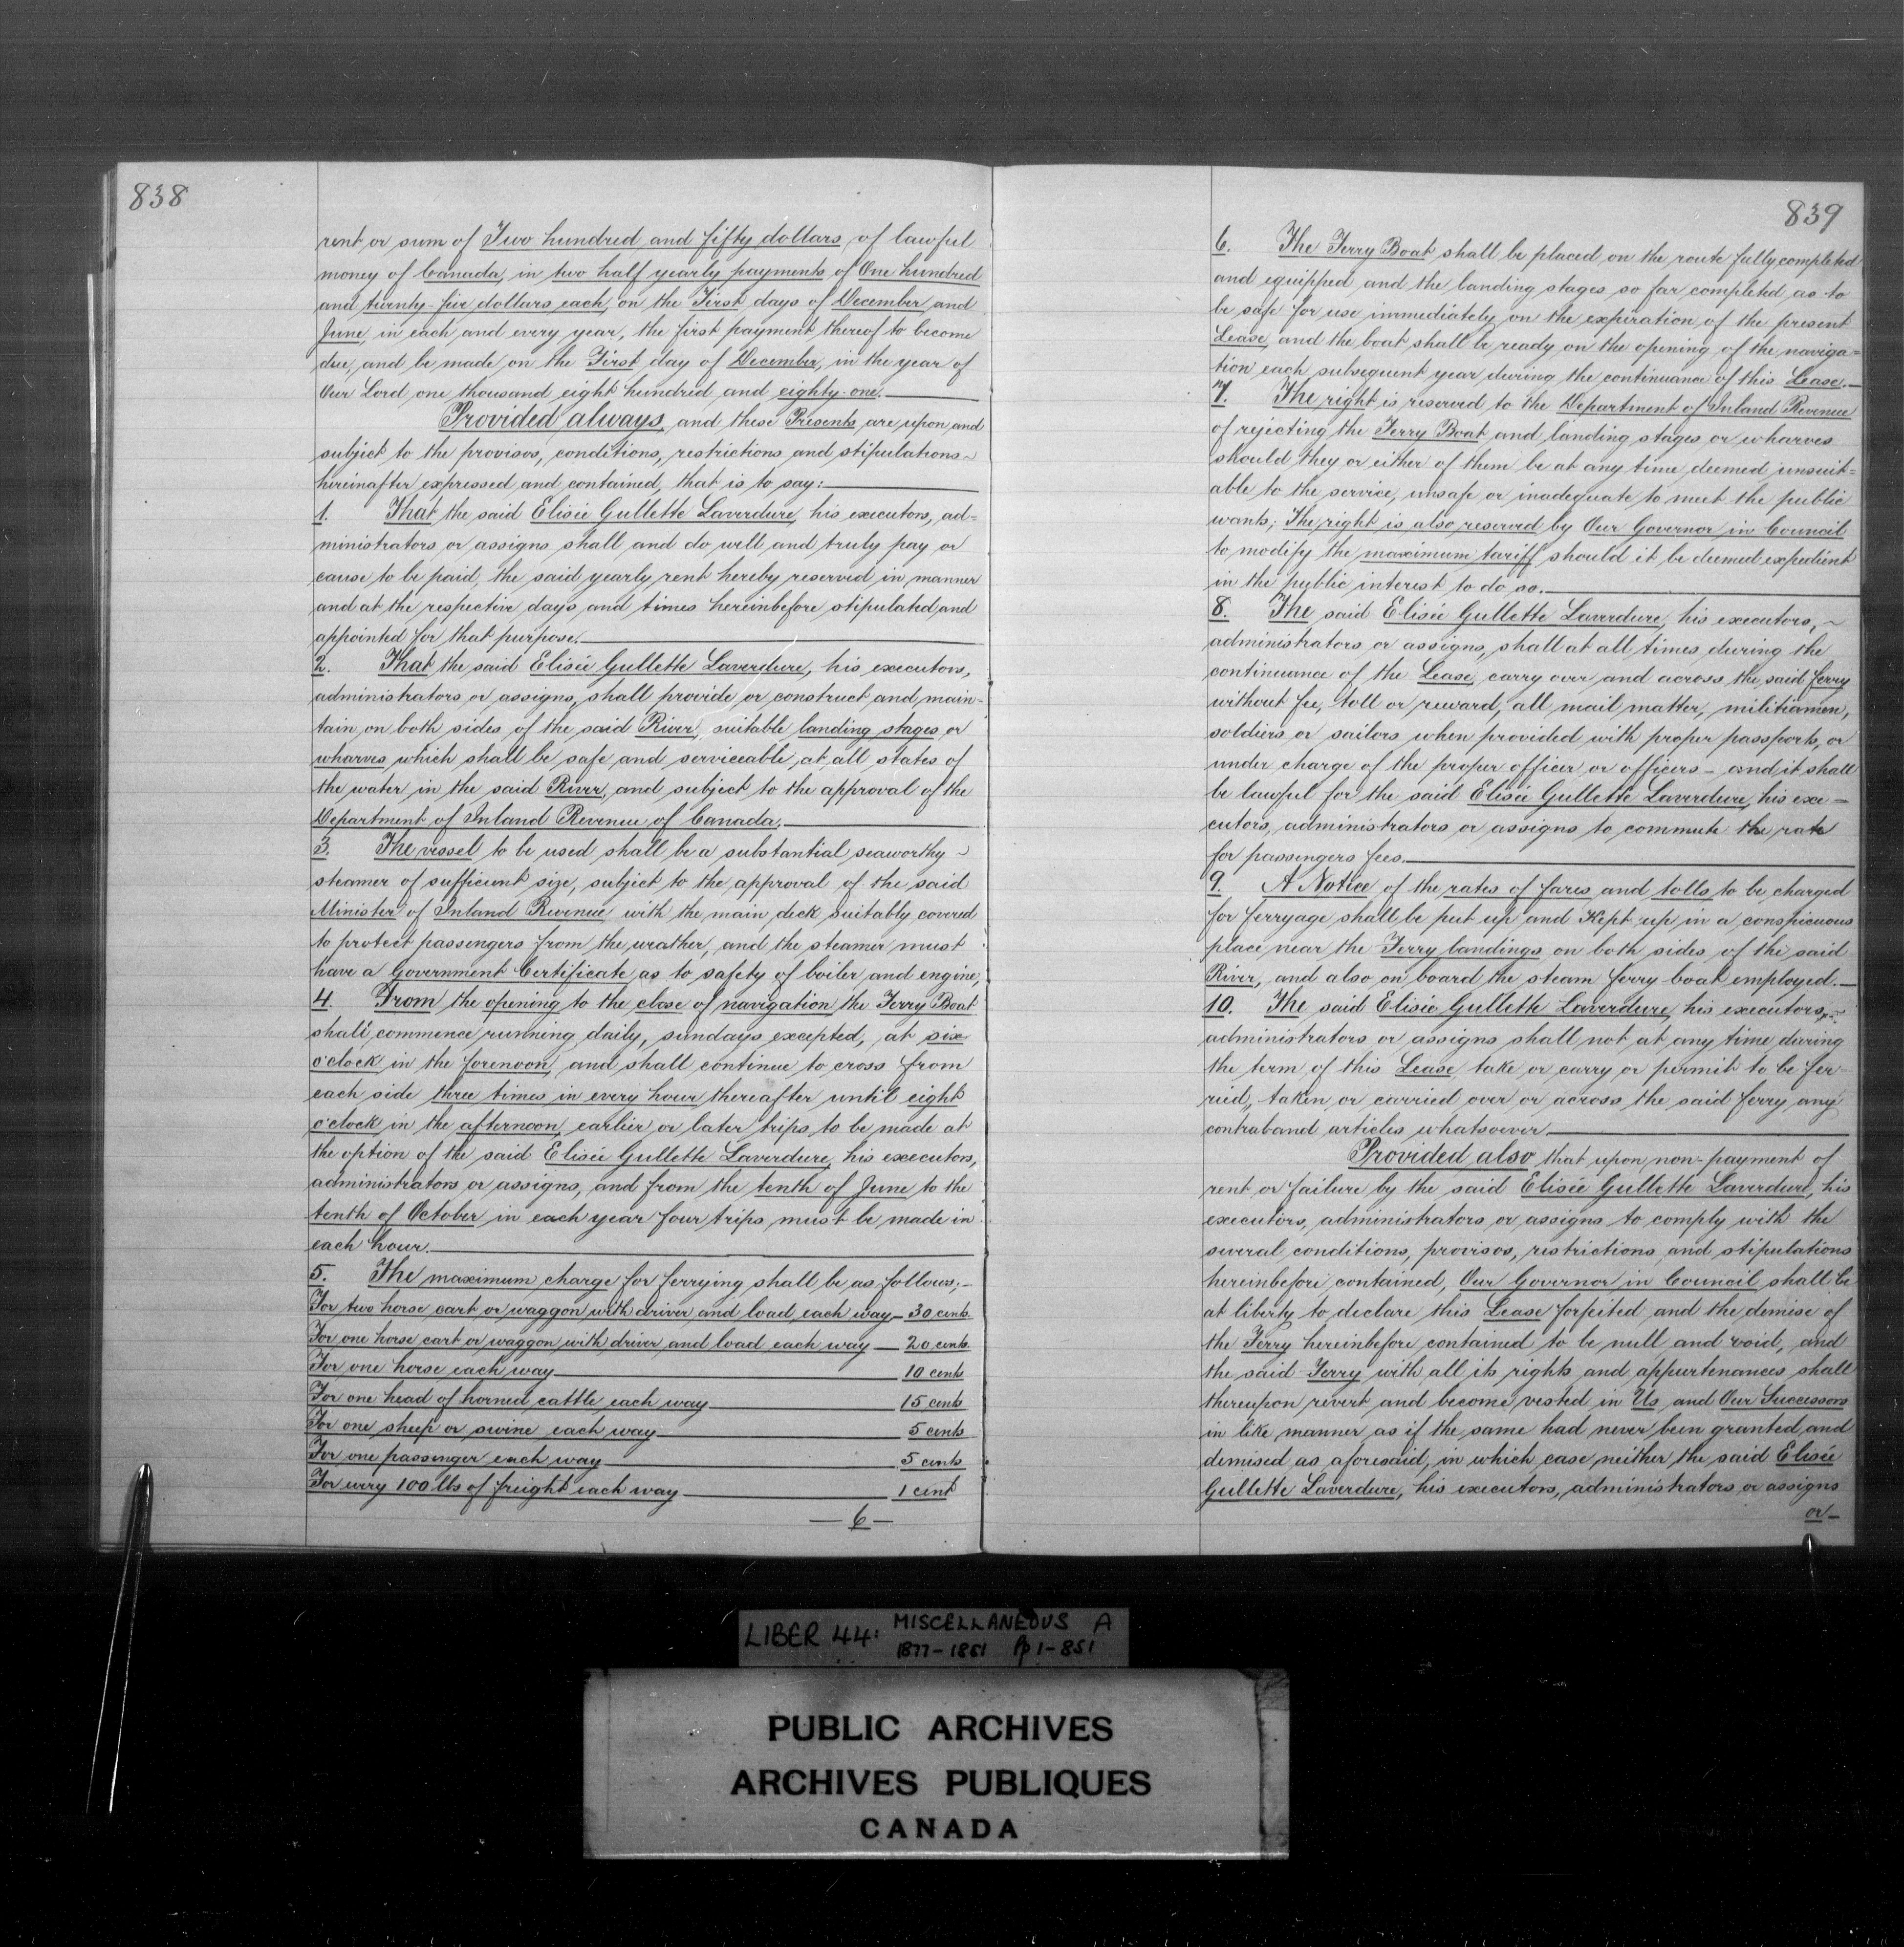 838
rent or sum of Two hundred and fifty dollars, of lawful
money of Canada, in two half yearly payments of One hundred
and twenty-five dollars each, on the First days of December and
June, in each and every year, the first payment thereof to become
due, and be made on the First day of December, in the year of
Our Lord one thousand eight hundred and eighty-one.
Provided always, and these Presents are upon and
subject to the provisos, conditions, restrictions and stipulations
hereinafter expressed and contained, that is to say:
1. That the said Elisée Gullette Laverdure, his executors, ad=
ministrators or assigns shall and do well and truly pay or
cause to be paid, the said yearly rent hereby reserved in manner
and at the respective days and times hereinbefore stipulated and
appointed for that purpose.
2. That the said Elisée Gullette Laverdure, his executors,
administrators or assigns, shall provide or construct and main=
tain on both sides of the said River, suitable landing stages or
wharves which shall be safe and serviceable at all states of
the water in the said River, and subject to the approval of the
Department of Inland Revenue of Canada.
3. The vessel to be used shall be a substantial seaworthy
steamer of sufficient size, subject to the approval of the said
Minister of Inland Revenue with the main deck suitably covered
to protect passengers from the weather, and the steamer must
have a Government Certificate as to safety of boiler and engine,
4. From the opening to the close of navigation the Ferry Boat
shall commence running daily, sundays excepted, at six
o'clock in the forenoon, and shall continue to cross from
each side three times in every hour thereafter until eight
o'clock in the afternoon, earlier or later trips to be made at
the option of the said Elisée Gullette Laverdure, his executors,
administrators or assigns, and from the tenth of June to the
tenth of October in each year four trips must be made in
each hour.
5. The maximum charge for ferrying shall be as follows;-
For two horse cart or waggon with driver and load each way — 30 cents.
For one horse cart or waggon with driver and load each way — 20 cents.
For one horse each way — 10 cents
For one head of horned cattle each way — 15 cents
For one sheep or swine each way — 5 cents
For one passenger each way — 5 cents
For every 100 lbs of freight each way — 1 cent
— 6 —
839
6. The Ferry Boat shall be placed on the route fully completed
and equipped and the landing stages so far completed as to
be safe for use immediately on the expiration of the present
Lease, and the boat shall be ready on the opening of the naviga=
tion each subsequent year during the continuance of this Lease.—
7. The right is reserved to the Department of Inland Revenue
of rejecting the Ferry Boat and landing stages or wharves
should they or either of them be at any time deemed unsuit=
able to the service, unsafe or inadequate to meet the public
wants; The right is also reserved by Our Governor in Council
to modify the maximum tariff should it be deemed expedient
in the public interest to do so.
8. The said Elisée Gullette Laverdure, his executors,
administrators or assigns, shall at all times during the
continuance of the Lease, carry over and across the said ferry
without fee, toll or reward, all mail matter, militiamen,
soldiers or sailors when provided with proper passports, or
under charge of the proper officer or officers - and it shall
be lawful for the said Elisée Gullette Laverdure, his exe=
cutors, administrators or assigns to commute the rate
for passengers fees.
9. A Notice of the rates of fares and tolls to be charged
for ferryage shall be put up and Kept up in a conspicuous
place near the Ferry landings on both sides of the said
River, and also on board the steam ferry boat employed.—
10. The said Elisée Gullette Laverdure, his executors,
administrators or assigns shall not at any time during
the term of this Lease, take or carry or permit to be fer-
ried, taken or carried over or across the said ferry any
contraband articles whatsoever
Provided also that upon non-payment of
rent or failure by the said Elisée Gullette Laverdure, his
executors, administrators or assigns to comply with the
several conditions, provisos, restrictions and stipulations
hereinbefore contained, Our Governor in Council shall be
at liberty to declare this Lease forfeited and the demise of
the Ferry hereinbefore contained to be null and void, and
the said Ferry with all its rights and appurtenances shall
thereupon revert and become vested in Us and Our Successors
in like manner as if the same had never been granted and
demised as aforesaid, in which case neither the said Elisée
Gullette Laverdure, his executors, administrators or assigns
or-
LIBER 44: MISCELLANEOUS A
1877-1881 Pp 1-851
PUBLIC ARCHIVES
ARCHIVES PUBLIQUES
CANADA